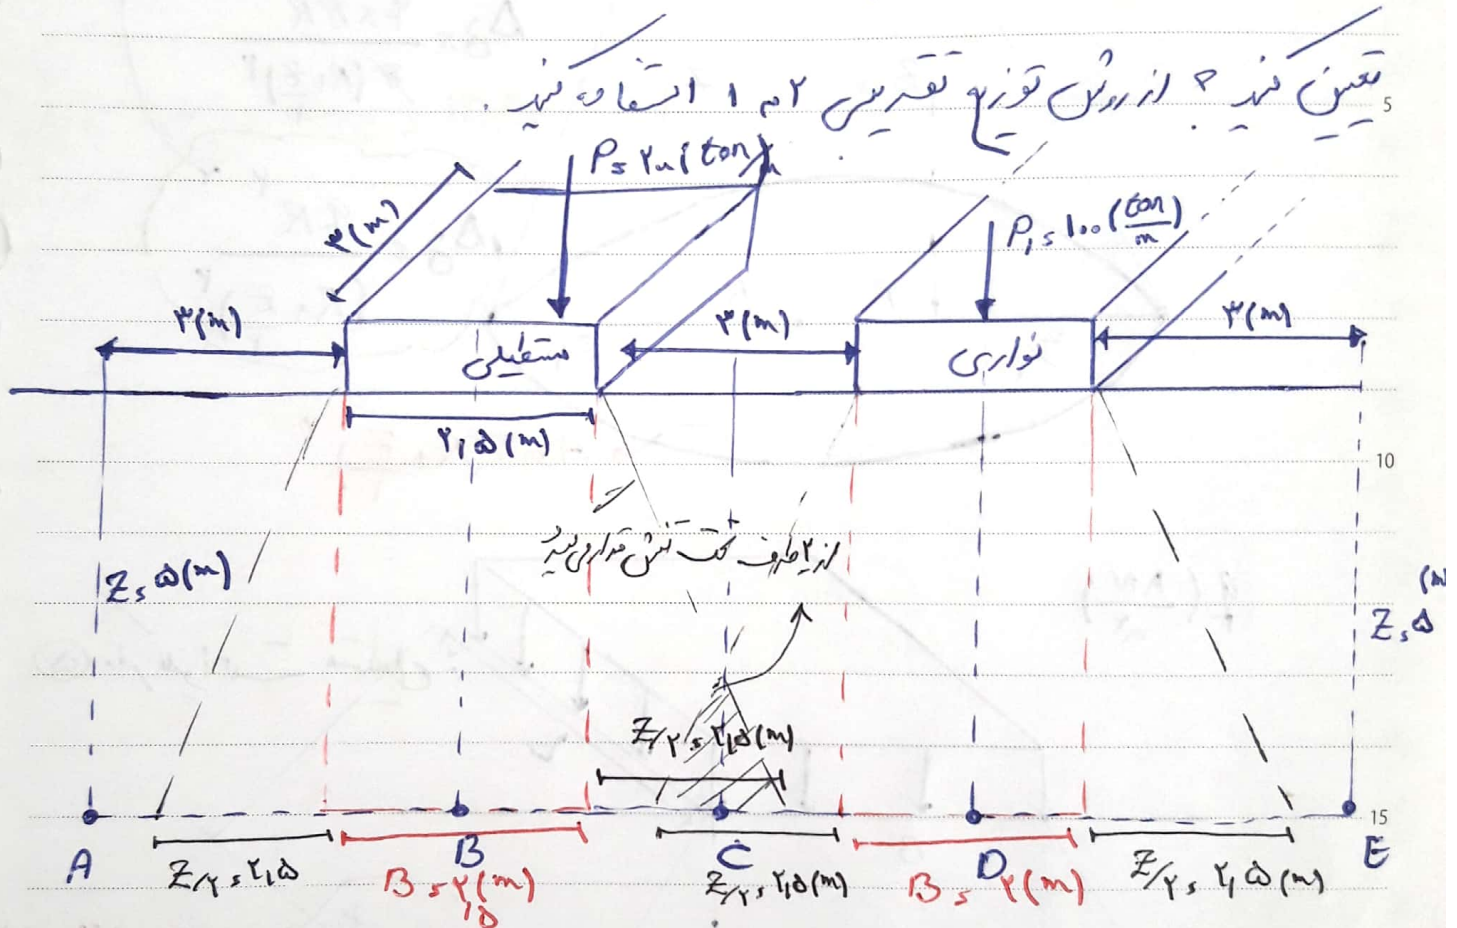 تعیین کنید ؟ از روش توزیع تقریبی ۲ به ۱ استفاده کنید .
5
P = ۲۰۰ (ton)
۳(m)
P₁ = 100 (ton/m)
۳(m)
۳(m)
۳(m)
مستطیلی
نواری
۲,۵(m)
10
از ۲ طرف تحت تنش قرار می‌گیرد
Z = ۵(m)
(m)
Z = ۵
Z/۲ = ۲,۵(m)
15
A
B
C
D
E
Z/۲ = ۲,۵
B = ۲,۵(m)
Z/۲ = ۲,۵(m)
B = ۲(m)
Z/۲ = ۲,۵(m)